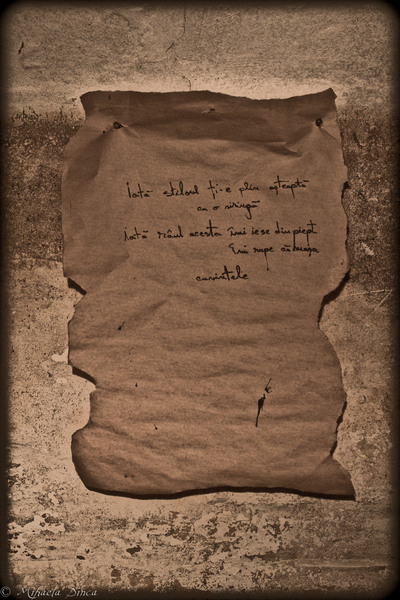 Iată stiloul ți-e plin așteaptă
ca o siringă
iată râul acesta îmi iese din piept
Îmi rupe cămașa
cuvintele
© Mihaela Dinca